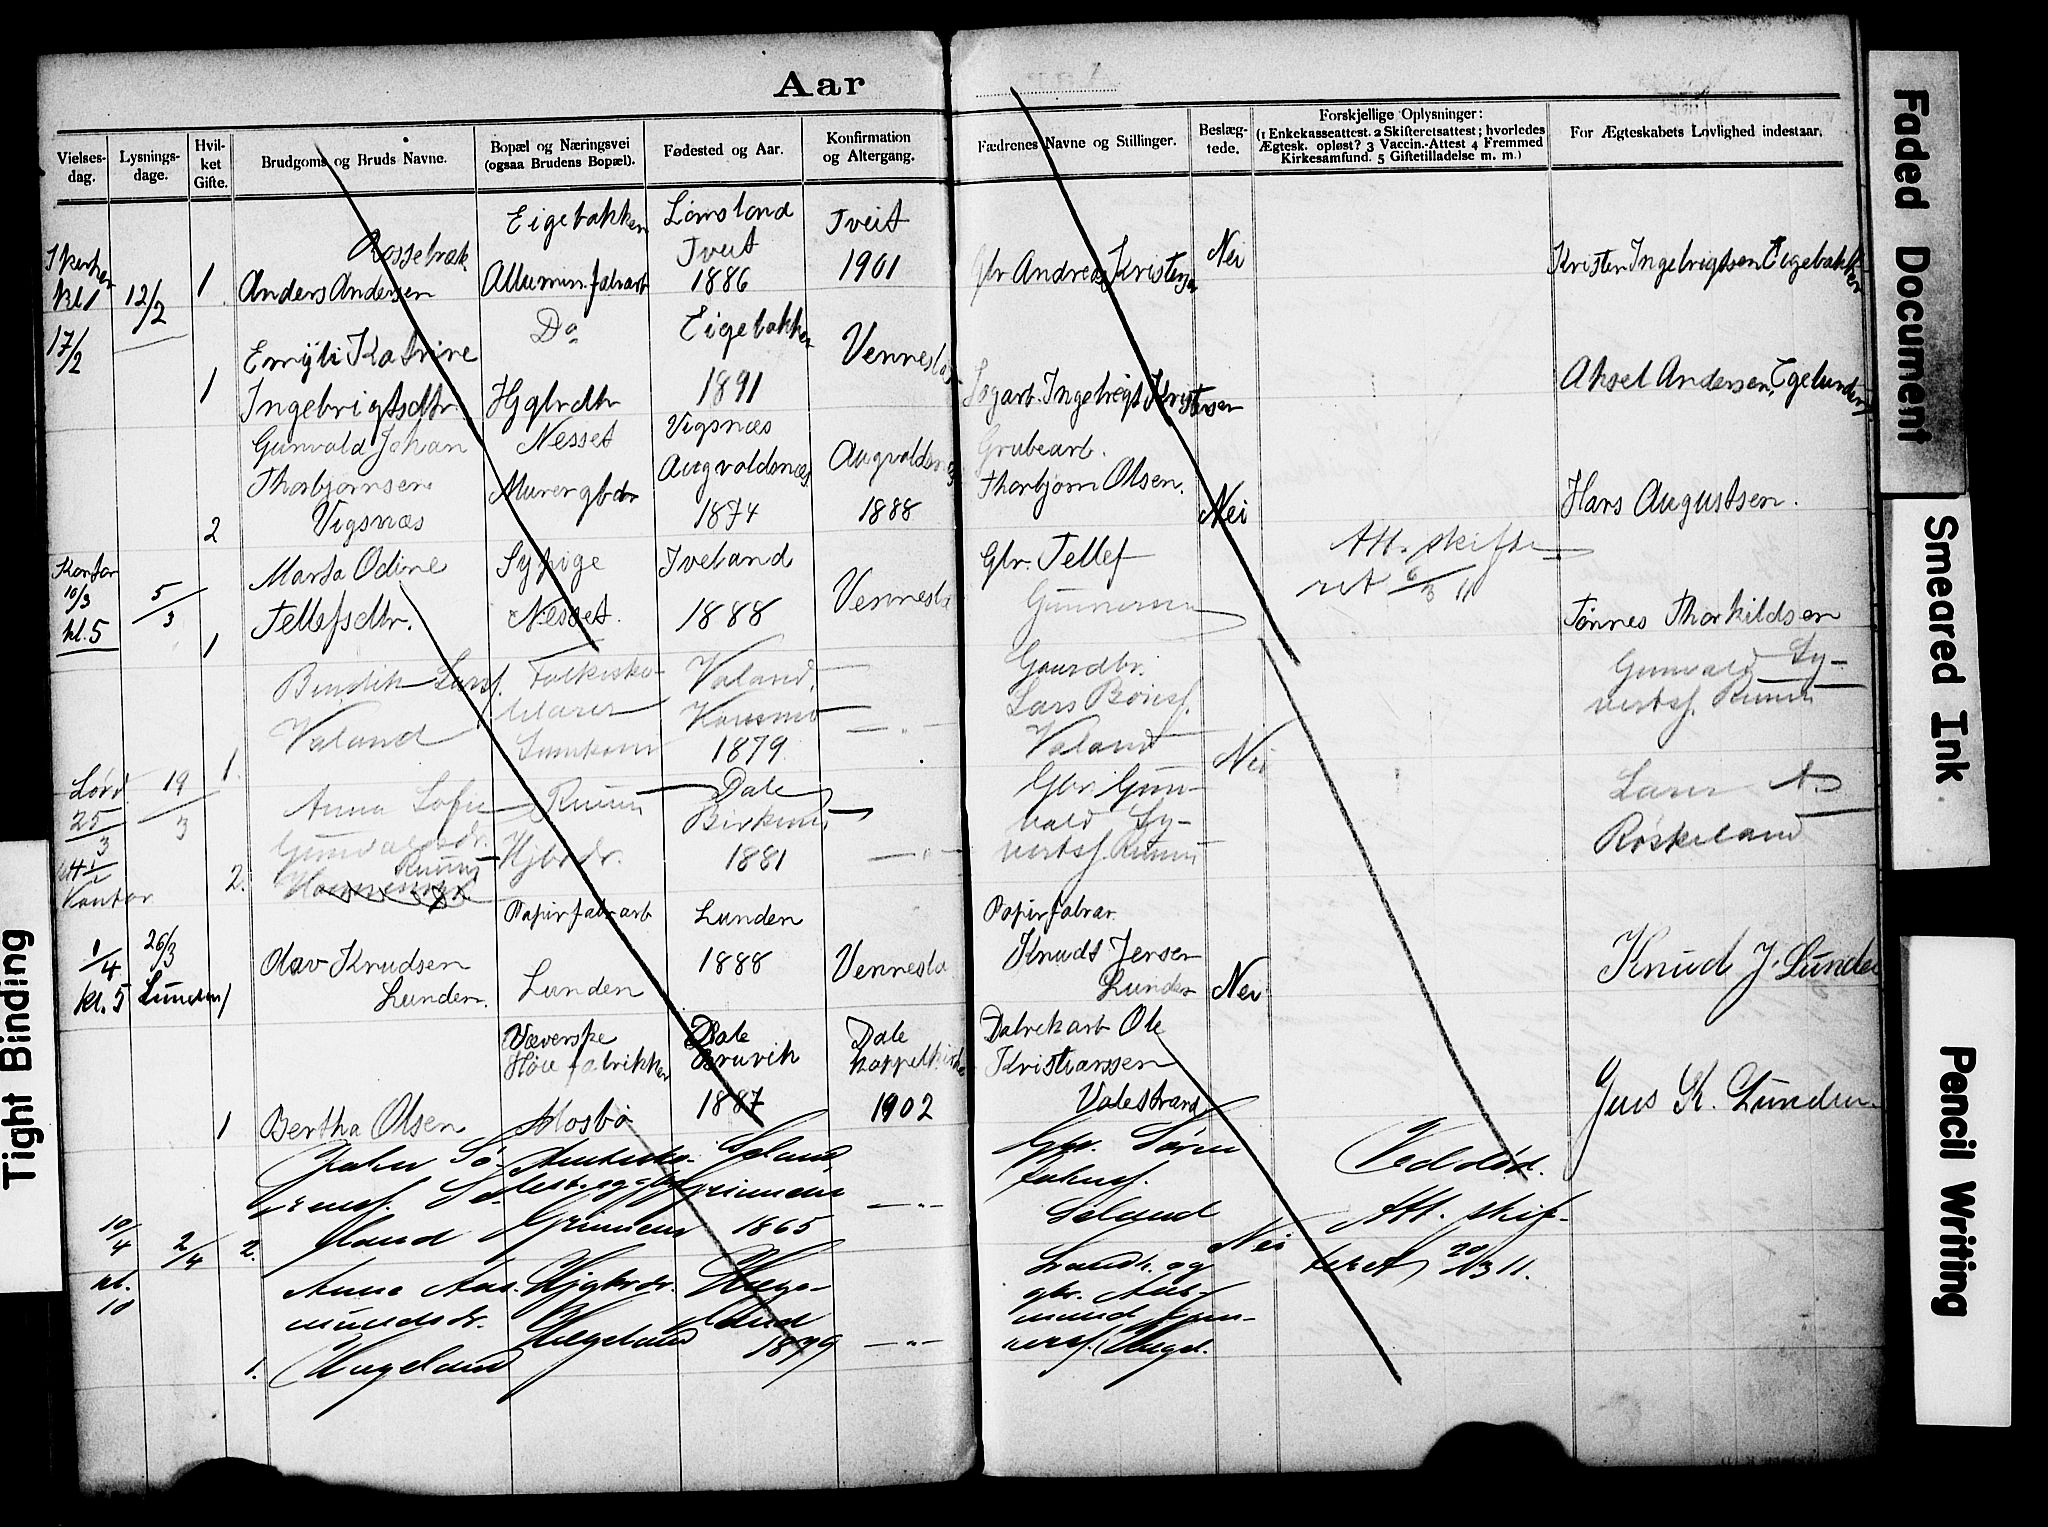 Aar
Vielses-
dag.
Lysnings-
dage.
Hvil-
ket
Gifte.
Brudgoms og Bruds Navne.
Bopæl og Næringsvei
(ogsaa Brudens Bopæl).
Fødested og Aar.
Konfirmation
og Altergang.
Fædrenes Navne og Stillinger.
Beslæg-
tede.
Forskjellige Oplysninger:
(1 Enkekasseattest. 2 Skifteretsattest; hvorledes
Ægtesk. opløst? 3 Vaccin.-Attest 4 Fremmed
Kirkesamfund. 5 Giftetilladelse m. m.)
For Ægteskabets Lovlighed indestaar.
kl 1
17/2
12/2
1
Anders Andersen
Eigebakken
Allumin. fabrarb
Lømsland
Tveit
1886
Tveit
1901
Gbr Andreas Kristensen
Nei
Kristen Ingebrigtsen Eigebakken
1
Emyli Katrine
Ingebrigtsdtr.
Do
Hjgbrdtr
Eigebakken
1891
Vennesla
Sagarb. Ingebrigt Kristensen
Aksel Andersen, Egelunden
2
Gunvald Johan
Thorbjørnsen
Vigsnæs
Nesset
Murer gbdr
Vigsnæs
Augvaldsnæs
1874
Augvaldsnæs
1888
Grubearb.
Thorbjørn Olsen.
Nei
Hans Augustsen.
Kontor
10/3
kl. 5
5/3
1
Marta Odine
Tellefsdtr.
Sypige
Nesset.
Iveland
1888
Vennesla
Gbr. Tellef
Gunnersen
Att. skifte
ret 6/3 11
Tønnes Thorkildsen
1.
Bendik Larsf.
Valand
Folkesko-
lelærer
Valand,
Konsmo
1879.
Gaardbr.
Lars Bönsf.
Valand
Nei
Gunvald Sy-
vertsf. Ruun
Lørd.
25/3
Kontor
19/3
2.
Anna Sofie
Gunvaldsdr.
Hjbrdr.
Dale
1881
Gbr. Gun-
vald Sy-
vertsf.
Lars A.
Røskeland
1/4
kl. 5
26/3
Lunden
1
Olav Knudsen
Lunden.
Papirfabrarb
Lunden
Lunden
1888
Vennesla
Papirfabrar.
Knudt Jensen
Lunden
Nei
Knud J. Lunden
1
Bertha Olsen
Væverske
Høie fabrikker
Mosbø
Dale
Bruvik
1887
Dale
kappelkirke
1902
Dalrekarb Ole
Kristianssen
Valestrand
Jens K. Lunden
10/4
kl.
10
2/4
2.
Jakob Sö-
rensf. Se-
land
Grimenes
Seland,
Grimenes
1865
Gbr. Sören
Jakobsf.
Seland
Nei
Ved död.
Att. skif-
teret 20/3 11.
1.
Anna Aas-
mundsdr.
Hægeland
Hjgbrdr.
Hægeland
Hæge-
land
1879
Landh. og
gbr. Aas-
mund Gun-
nersf. Hægel.
Faded Document
Smeared Ink
Pencil Writing
Tight Binding